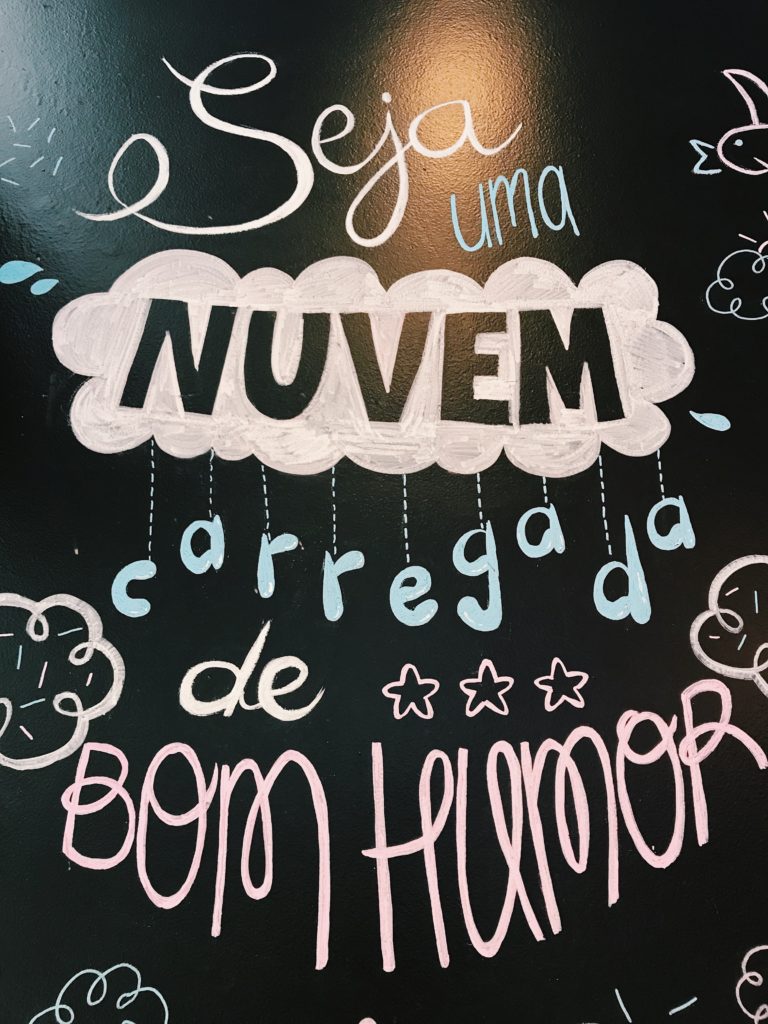 Seja
uma
NUVEM
carregada
de
BOM HUMOR